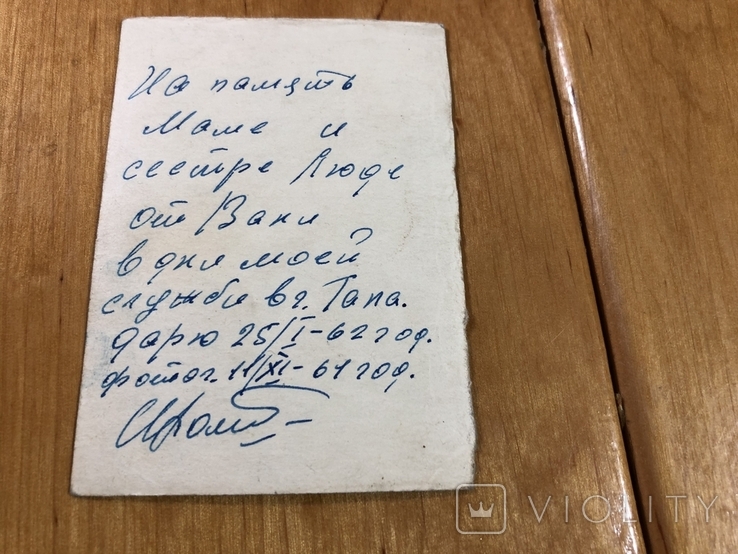 На память
Маме и
сестре Люде
от Вани
в дни моей
службы в г. Тапа.
дарю 25/I-62 год.
фотог. 11/XI-61 год.
VIOLITY